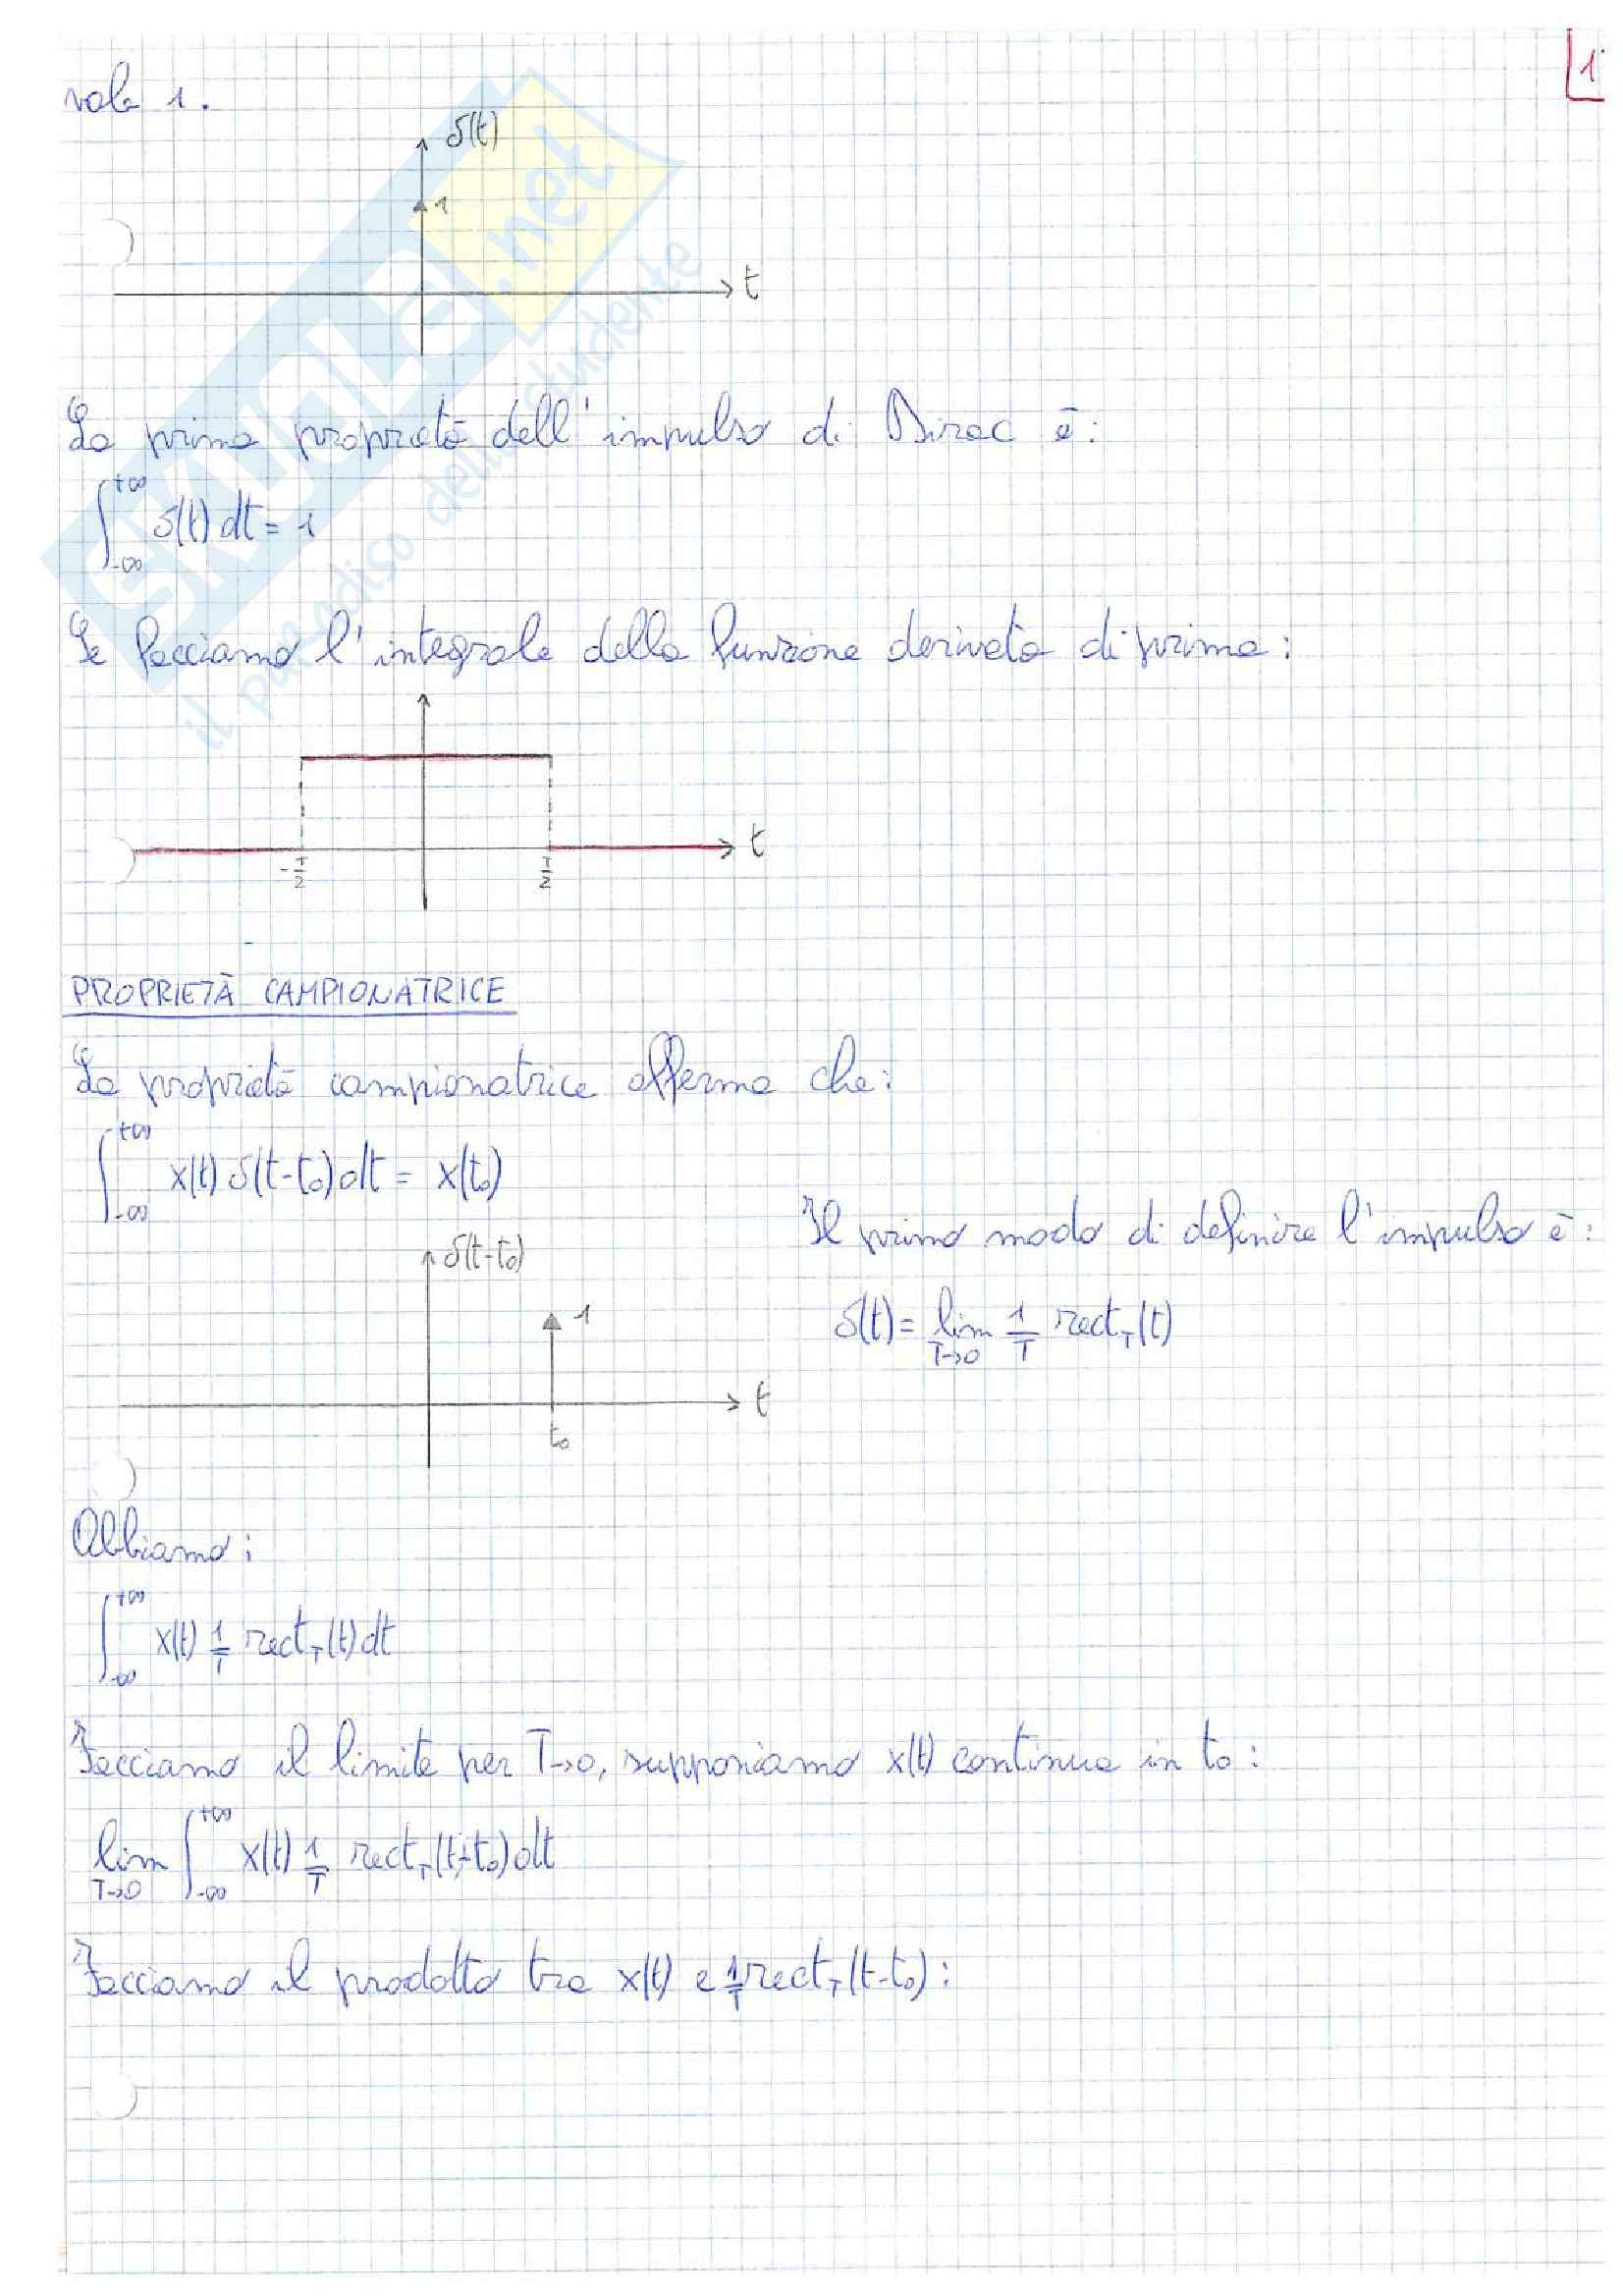 1
vale 1.
δ(t)
1
t
La prima proprietà dell'impulso di Dirac è:
∫_{-∞}^{+∞} δ(t) dt = 1
Se facciamo l'integrale della funzione derivata di prima:
t
-T/2
T/2
PROPRIETÀ CAMPIONATRICE
La proprietà campionatrice afferma che:
∫_{-∞}^{+∞} x(t) δ(t-t₀) dt = x(t₀)
Il primo modo di definire l'impulso è:
δ(t) = lim_{T→0} 1/T rect_T(t)
δ(t-t₀)
1
t
t₀
Abbiamo:
∫_{-∞}^{+∞} x(t) 1/T rect_T(t) dt
Facciamo il limite per T→0, supponiamo x(t) continua in t₀:
lim_{T→0} ∫_{-∞}^{+∞} x(t) 1/T rect_T(t-t₀) dt
Facciamo il prodotto tra x(t) e 1/T rect_T(t-t₀):
SKUOLA.net
il paradiso dello studente